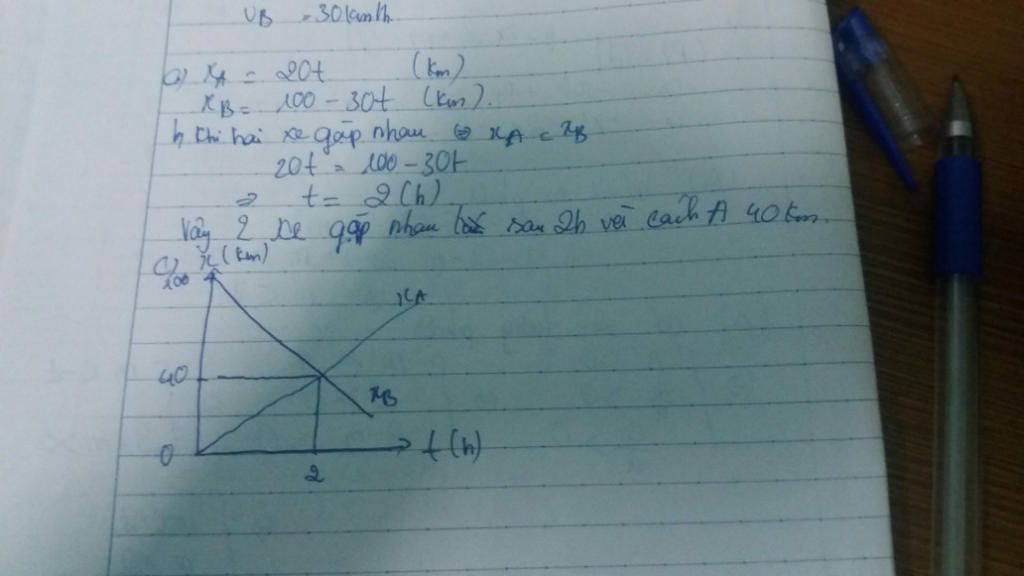 vB = 30km/h
a) xA = 20t (km)
xB = 100 - 30t (km).
b, Khi hai xe gặp nhau ⇔ xA = xB
20t = 100 - 30t
⇒ t = 2 (h)
Vậy 2 xe gặp nhau sau 2h và cách A 40 km.
c) x (km)
100
xA
40
xB
0
t (h)
2